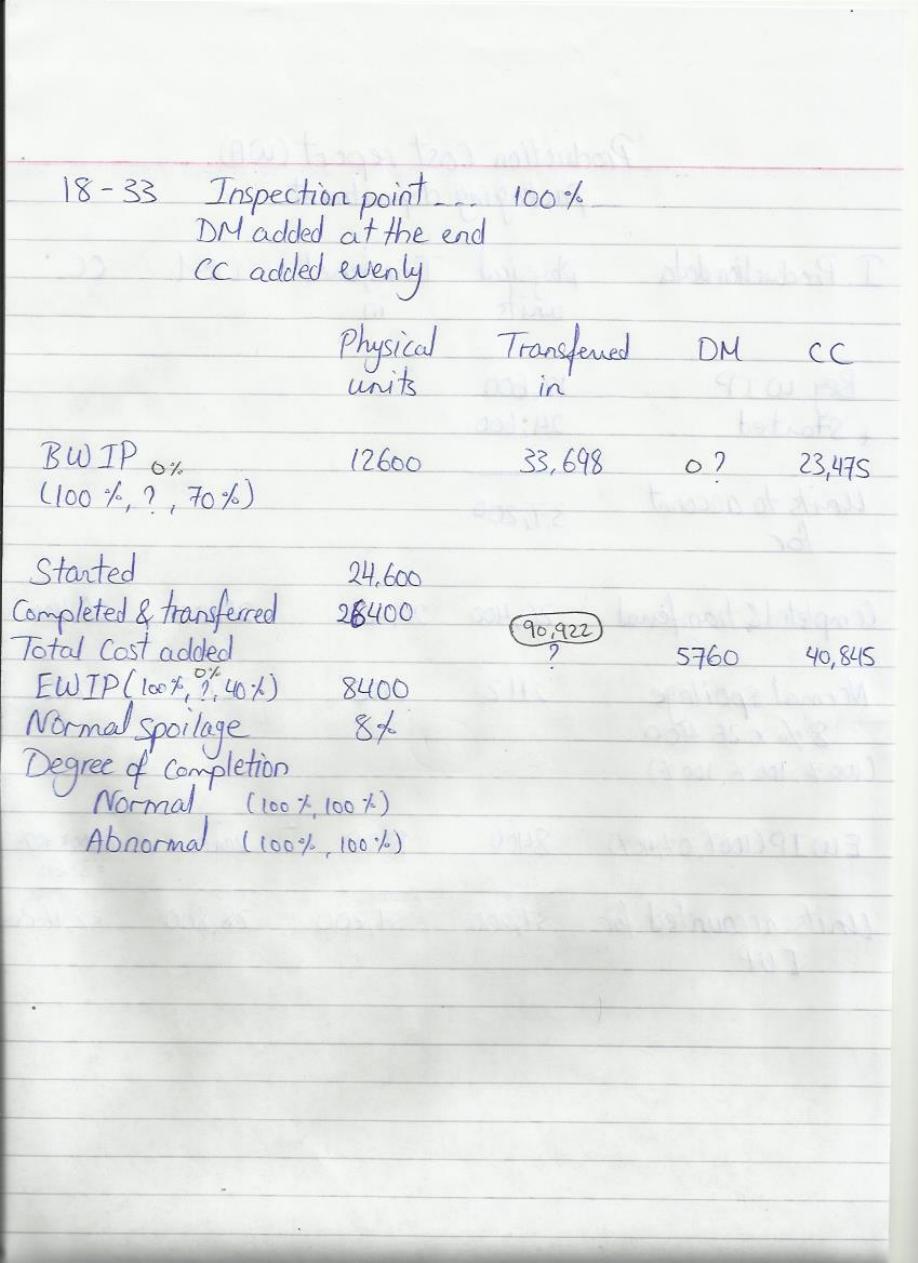 18-33 Inspection point ... 100%
DM added at the end
CC added evenly
Physical units Transferred in DM CC
BWIP 0% 12600 33,698 0 ? 23,475
(100 %, ?, 70 %)
Started 24,600
Completed & transferred 26400 90,922
Total Cost added ? 5760 40,845
EWIP (100%, ?, 40%) 0% 8400
Normal spoilage 8%
Degree of Completion
Normal (100 %, 100 %)
Abnormal (100%, 100%)